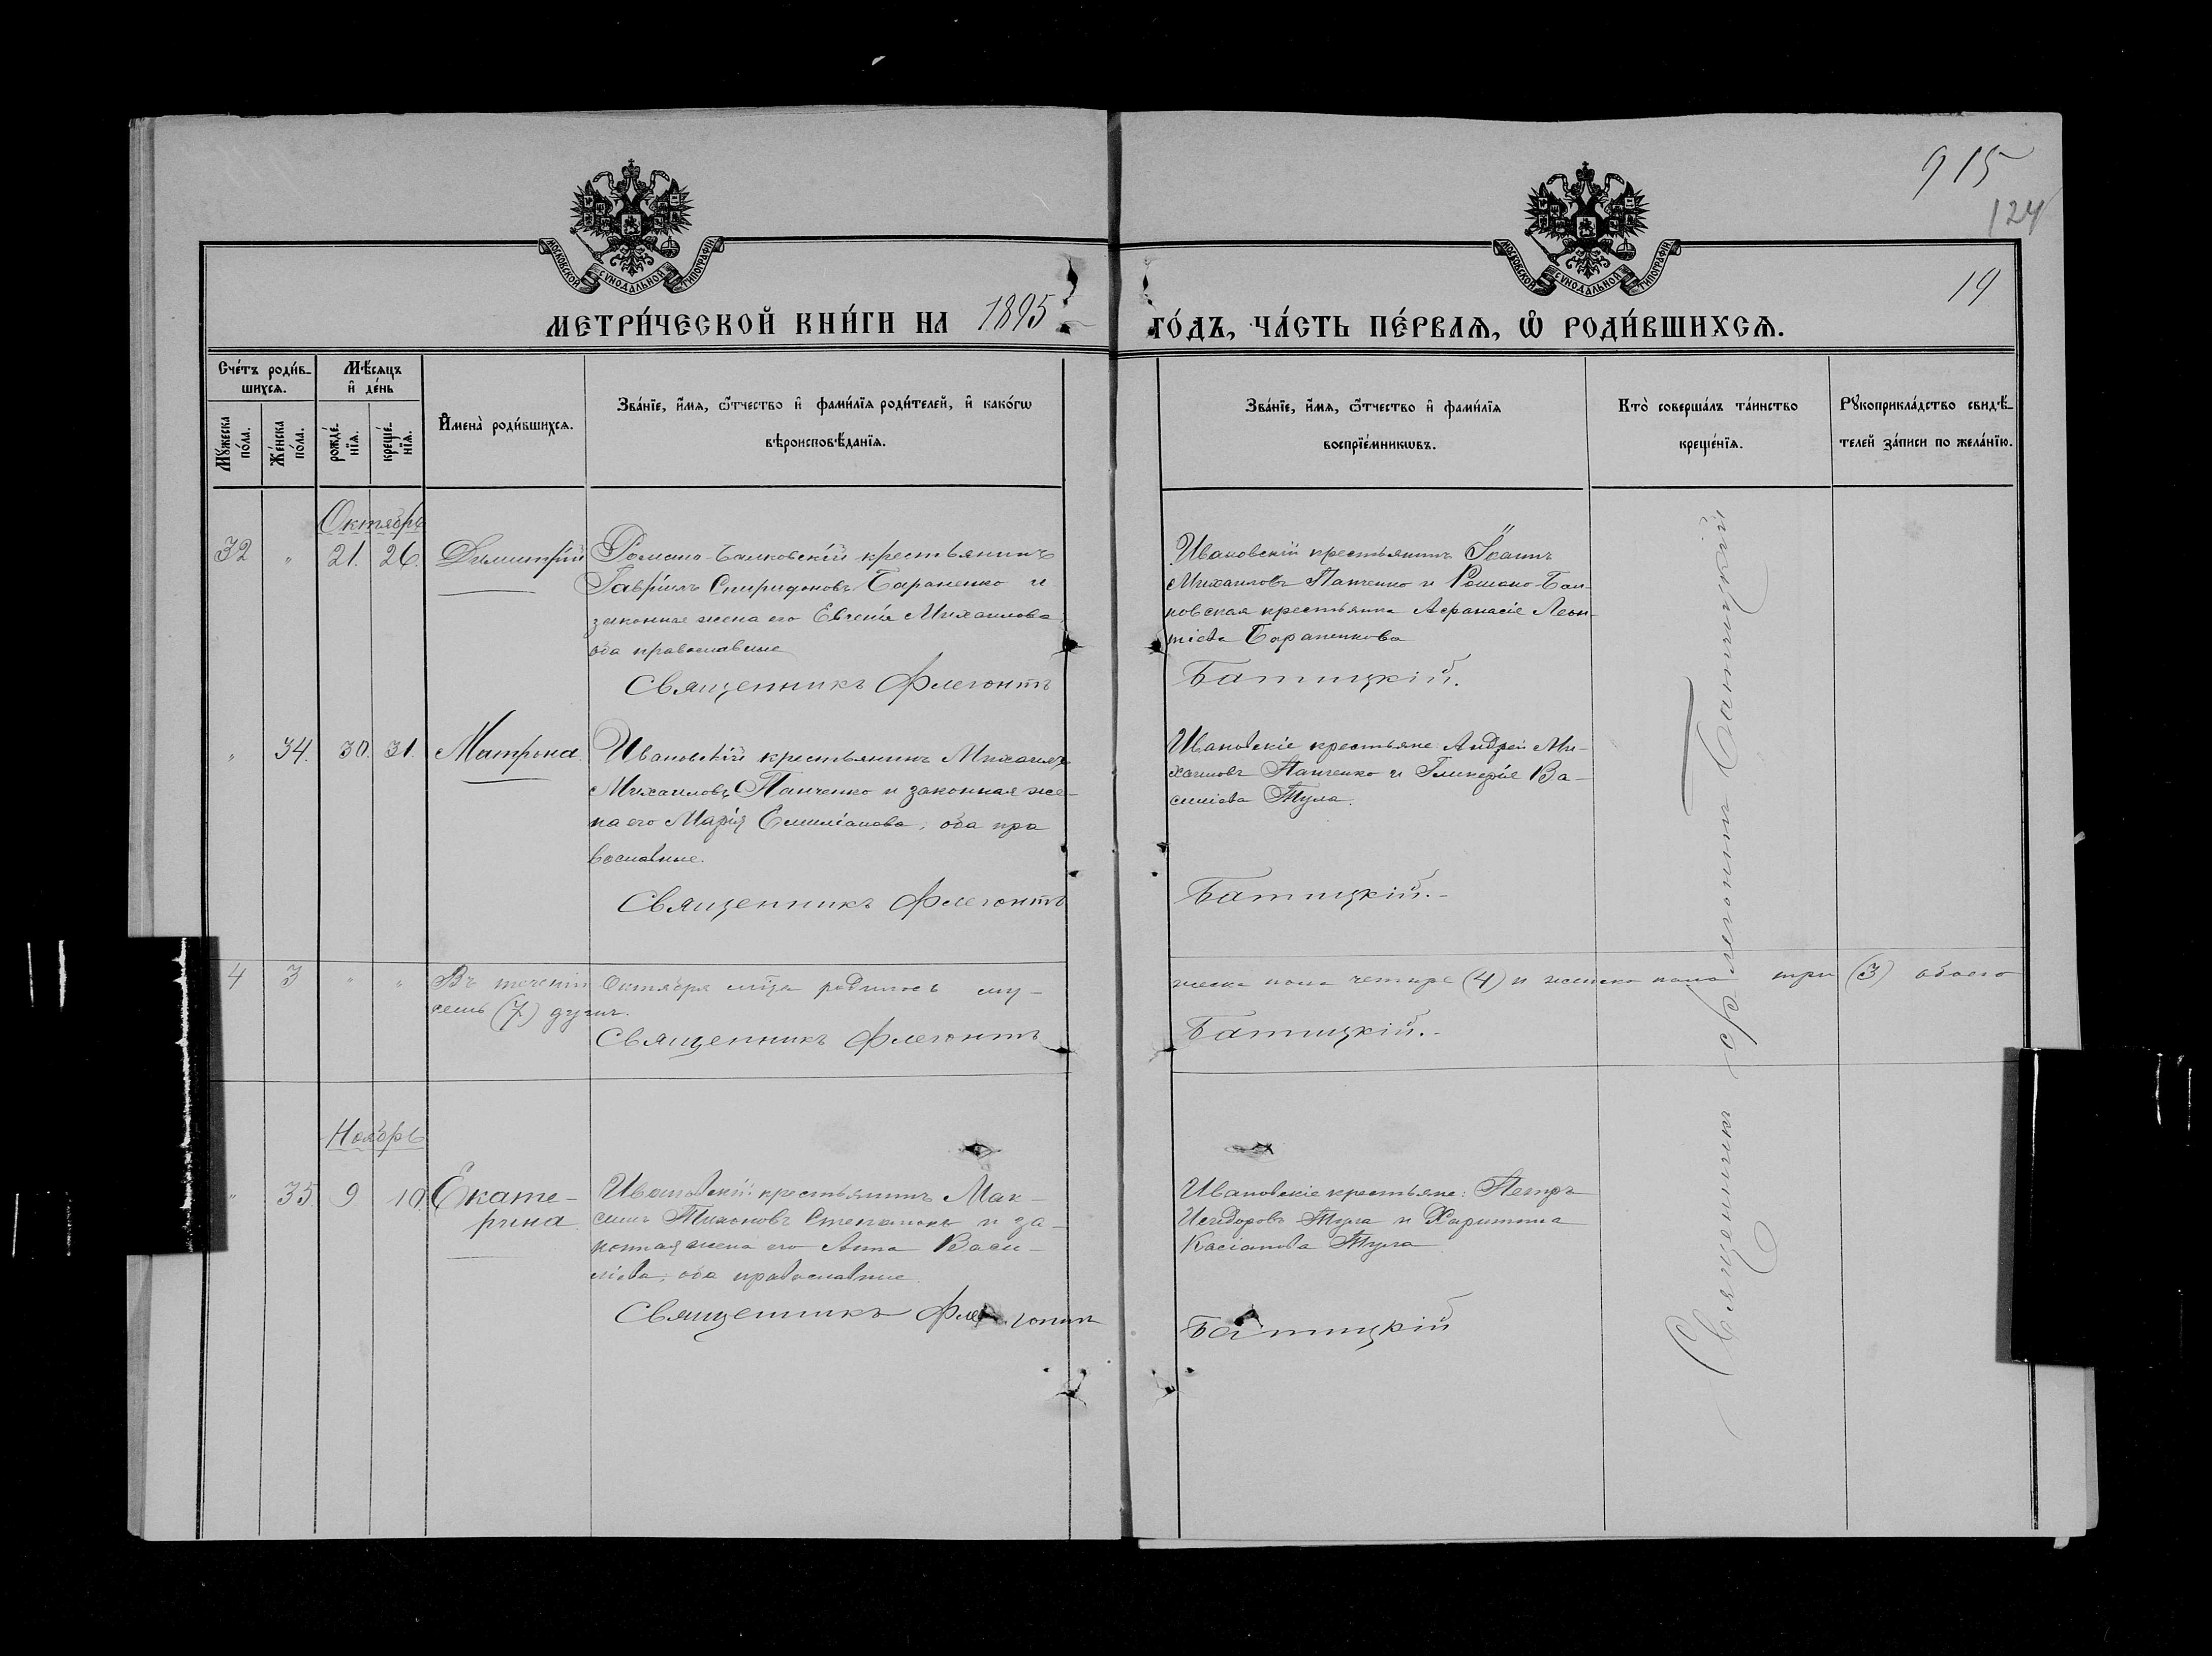 915
124
19
МОСКОВСКОЙ СѴНОДАЛЬНОЙ ТИПОГРАФІИ
МОСКОВСКОЙ СѴНОДАЛЬНОЙ ТИПОГРАФІИ
МЕТРИ́ЧЕСКОЙ КНИ́ГИ НА 1895 ГО́ДЪ, ЧА́СТЬ ПЕ́РВАѦ, Ѡ҆ РОДИ́ВШИХСѦ.
Сче́тъ роди́в-
шихсѧ.
Мꙋ́жеска по́ла.
Же́нска по́ла.
Мѣ́сяцъ
и҆ де́нь
рожде́-нїѧ.
креще́-нїѧ.
И҆мена̀ роди́вшихсѧ.
Зва́нїе, и҆́мѧ, ѻ҆́тчество и҆ фами́лїѧ роди́телей, и҆ како́гѡ
вѣроисповѣ́данїѧ.
Зва́нїе, и҆́мѧ, ѻ҆́тчество и҆ фами́лїѧ
воспрїе́мникѡвъ.
Кто̀ соверша́лъ та́инство
креще́нїѧ.
Рꙋкоприкла́дство свидѣ́-
телей за́писи по жела́нїю.
Октябрь
32 " 21. 26. Димитрій
Романо-Балковскій крестьянинъ
Гавріилъ Спиридоновъ Бараненко и
законная жена его Евгенія Михаилова
оба православные
Священникъ Флегонтъ
Ивановскій крестьянинъ Іоаннъ
Михаиловъ Панченко и Романо-Бал-
ковская крестьянка Афанасія Леон-
тіева Бараненкова
Батицкій.
" 34. 30. 31. Матрона.
Ивановскій крестьянинъ Михаилъ
Михаиловъ Панченко и законная же-
на его Марія Емиліанова, оба пра
вославные.
Священникъ Флегонтъ
Ивановскіе крестьяне: Андрей Ми-
хаиловъ Панченко и Гликерія Ва-
силіева Тула.
Батицкій.-
4 3 " " Въ теченіи Октября мѣца родилось му- жеска пола четыре (4) и женска пола три (3) обоего
семь (7) душъ.
Священникъ Флегонтъ Батицкій.-
Ноябрь
" 35. 9 10. Екате-
рина
Ивановскій крестьянинъ Мак-
симъ Тихоновъ и за-
конная жена его Анна Васи-
ліева, оба православные.
Священникъ Флегонтъ
Ивановскіе крестьяне: Петръ
Исидоровъ Тула и Харитина
Касіанова Тула
Батицкій
Священникъ Флегонтъ Батицкій